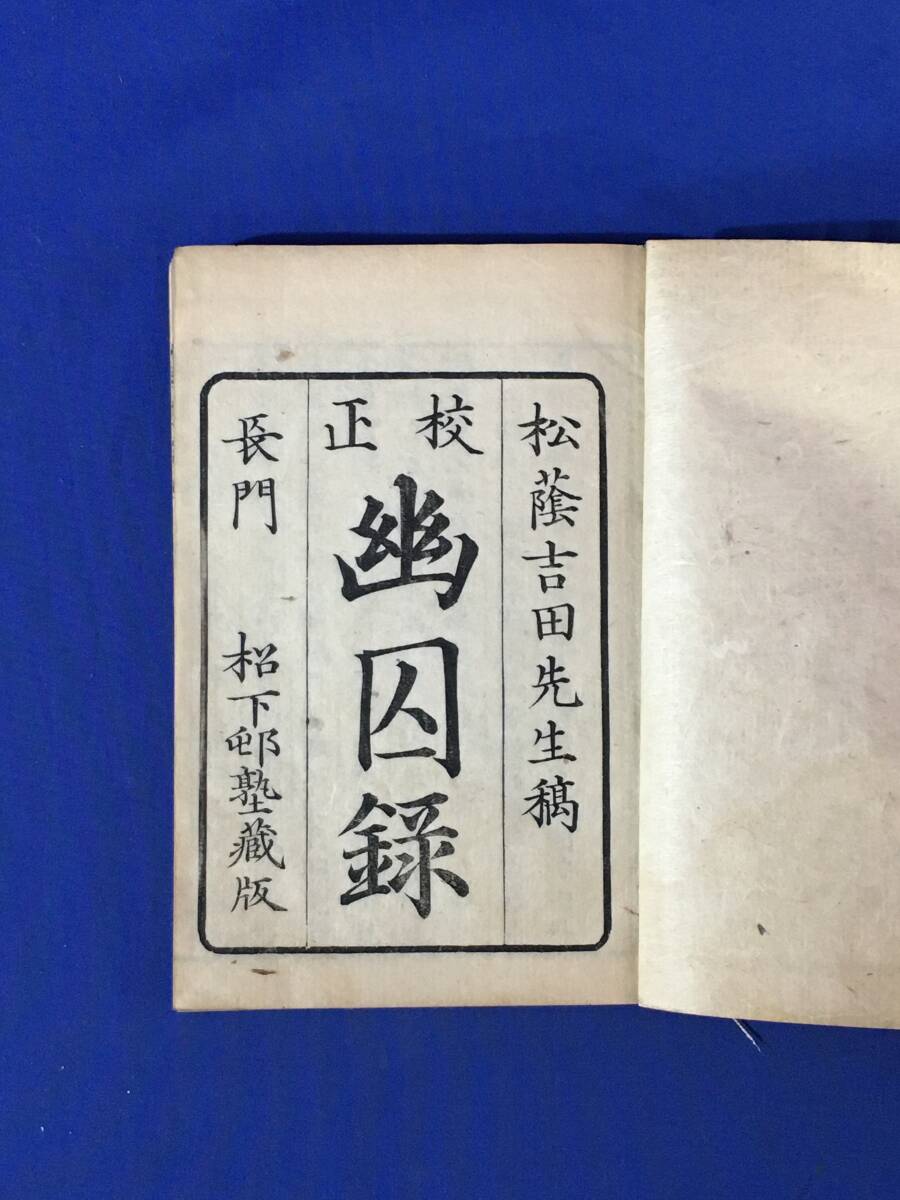 松蔭吉田先生稿
校正
幽囚録
長門 松下邨塾藏版